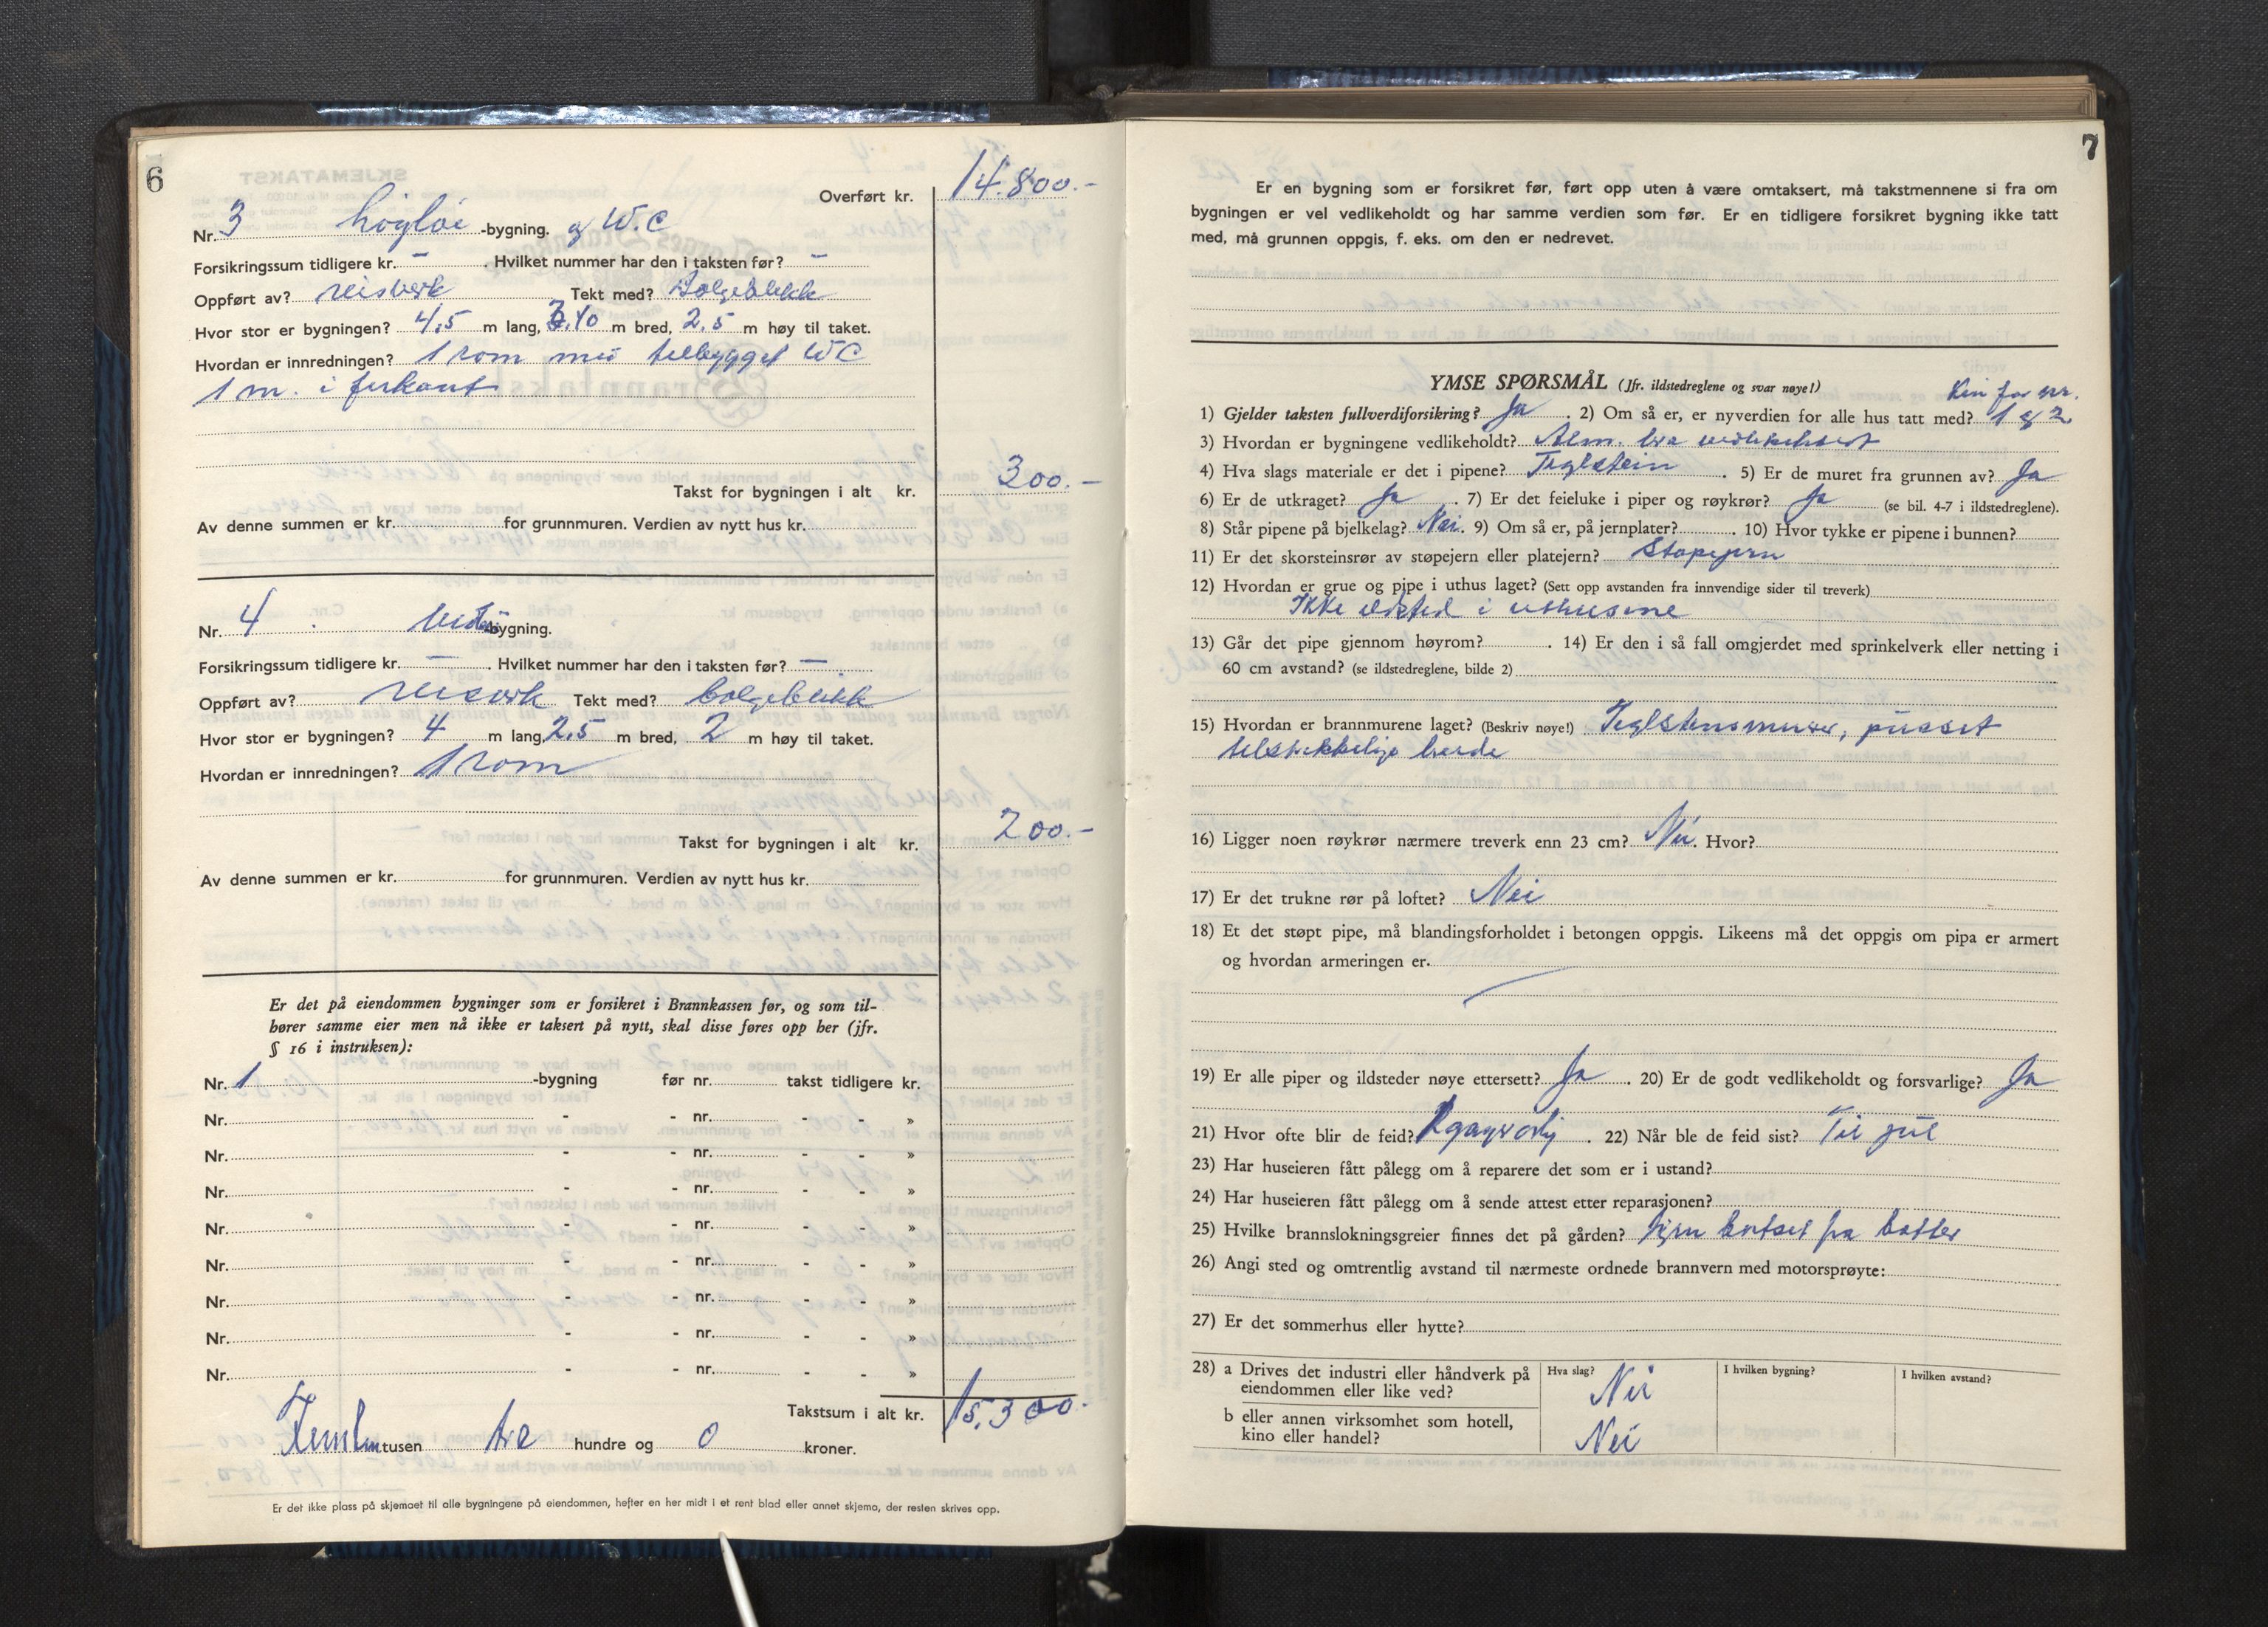 6
Overført kr. 14.800.-
Nr. 3 högløe -bygning. og W.C
Forsikringssum tidligere kr. - . Hvilket nummer har den i taksten før? -
Oppført av? reisverk Tekt med? Bølgeblekk
Hvor stor er bygningen? 4,5 m lang, 3.10 m bred, 2,5 m høy til taket.
Hvordan er innredningen? 1 rom med tilbygget WC
1 m. i firkant
300.-
Takst for bygningen i alt kr.
Av denne summen er kr. for grunnmuren. Verdien av nytt hus kr.
Nr. 4 bygning.
Forsikringssum tidligere kr. - . Hvilket nummer har den i taksten før? -
Oppført av? reisverk Tekt med? bølgeblikk
Hvor stor er bygningen? 4 m lang, 2,5 m bred, 2 m høy til taket.
Hvordan er innredningen? 1 rom
200.-
Takst for bygningen i alt kr.
Av denne summen er kr. for grunnmuren. Verdien av nytt hus kr.
Er det på eiendommen bygninger som er forsikret i Brannkassen før, og som til-
hører samme eier men nå ikke er taksert på nytt, skal disse føres opp her (jfr.
§ 16 i instruksen):
Nr. 1 -bygning før nr. takst tidligere kr.
Nr. - - nr. - - »
Nr. - - nr. - - »
Nr. - - nr. - - »
Nr. - - nr. - - »
Nr. - - nr. - - »
Nr. - - nr. - - »
Nr. - - nr. - - »
Nr. - - nr. - - »
Takstsum i alt kr. 15.300.-
Femten tusen tre hundre og 0 kroner.
Er det ikke plass på skjemaet til alle bygningene på eiendommen, hefter en her midt i et rent blad eller annet skjema, der resten skrives opp.
7
Er en bygning som er forsikret før, ført opp uten å være omtaksert, må takstmennene si fra om
bygningen er vel vedlikeholdt og har samme verdien som før. Er en tidligere forsikret bygning ikke tatt
med, må grunnen oppgis, f. eks. om den er nedrevet.
YMSE SPØRSMÅL (Jfr. ildstedreglene og svar nøye!)
Kun for nr.
1) Gjelder taksten fullverdiforsikring? Ja . 2) Om så er, er nyverdien for alle hus tatt med? 1 og 2
3) Hvordan er bygningene vedlikeholdt? Alm. bra vedlikeholdt
4) Hva slags materiale er det i pipene? Teglstein . 5) Er de muret fra grunnen av? Ja
6) Er de utkraget? Ja . 7) Er det feieluke i piper og røykrør? Ja (se bil. 4-7 i ildstedreglene).
8) Står pipene på bjelkelag? Nei. 9) Om så er, på jernplater? . 10) Hvor tykke er pipene i bunnen?
11) Er det skorsteinsrør av støpejern eller platejern? Støpejern
12) Hvordan er grue og pipe i uthus laget? (Sett opp avstanden fra innvendige sider til treverk)
Ikke ildsted i uthusene
13) Går det pipe gjennom høyrom? . 14) Er den i så fall omgjerdet med sprinkelverk eller netting i
60 cm avstand? (se ildstedreglene, bilde 2)
15) Hvordan er brannmurene laget? (Beskriv nøye!) Teglstensmurer, pusset
tilstrekkelige brede
16) Ligger noen røykrør nærmere treverk enn 23 cm? Nei. Hvor?
17) Er det trukne rør på loftet? Nei
18) Et det støpt pipe, må blandingsforholdet i betongen oppgis. Likeens må det oppgis om pipa er armert
og hvordan armeringen er.
19) Er alle piper og ildsteder nøye ettersett? Ja . 20) Er de godt vedlikeholdt og forsvarlige? Ja
21) Hvor ofte blir de feid? . 22) Når ble de feid sist? Til jul
23) Har huseieren fått pålegg om å reparere det som er i ustand?
24) Har huseieren fått pålegg om å sende attest etter reparasjonen?
25) Hvilke brannslokningsgreier finnes det på gården?
26) Angi sted og omtrentlig avstand til nærmeste ordnede brannvern med motorsprøyte:
27) Er det sommerhus eller hytte?
28) a Drives det industri eller håndverk på
eiendommen eller like ved?
Hva slag? Nei
I hvilken bygning?
I hvilken avstand?
b eller annen virksomhet som hotell,
kino eller handel?
Nei